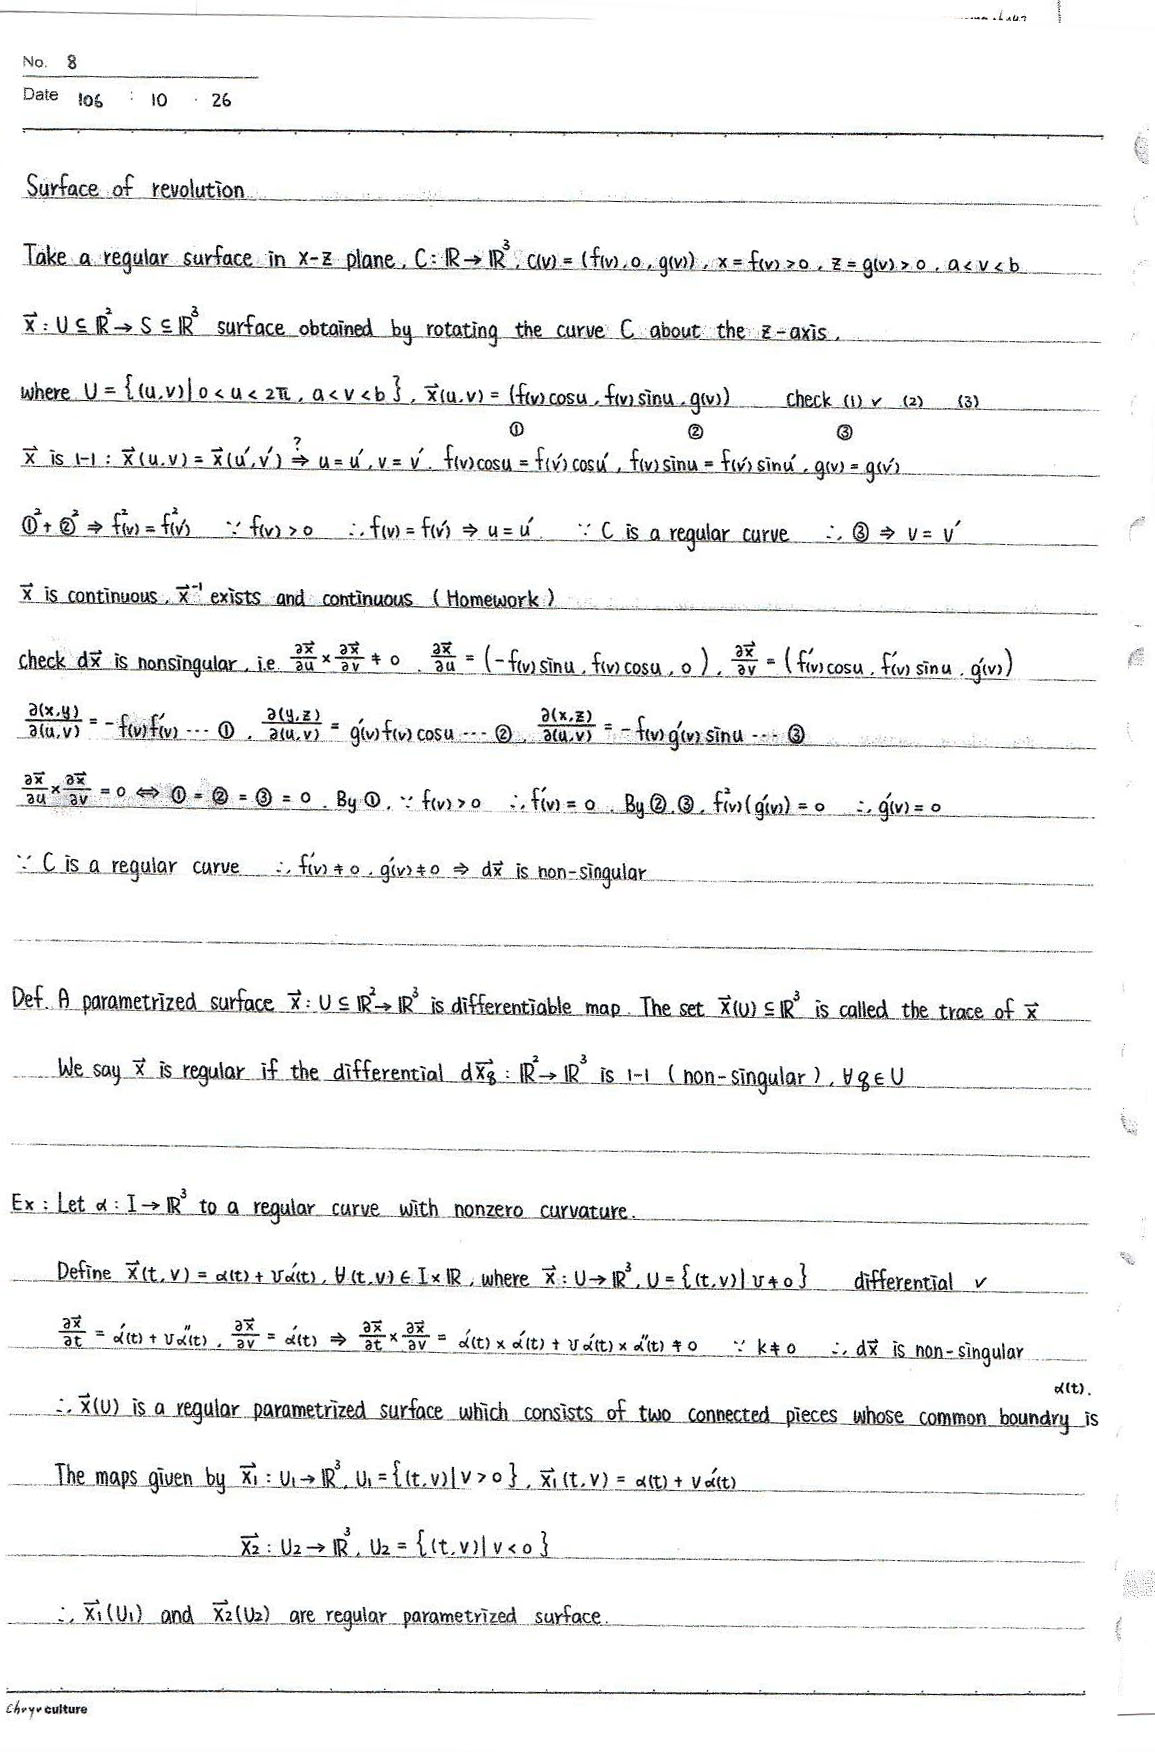 No. 8
Date 106 : 10 · 26
Surface of revolution
Take a regular surface in x-z plane, C: ℝ→ℝ³, C(v) = (f(v), 0, g(v)), x = f(v) > 0, z = g(v) > 0, a < v < b
x⃗ : U ⊆ ℝ² → S ⊆ ℝ³ surface obtained by rotating the curve C about the z-axis,
where U = {(u,v) | 0 < u < 2π, a < v < b}, x⃗(u,v) = (f(v)cosu, f(v)sinu, g(v)) check (1) ✓ (2) (3)
① ② ③
x⃗ is 1-1 : x⃗(u,v) = x⃗(u',v') ⇒? u = u', v = v'. f(v)cosu = f(v')cosu', f(v)sinu = f(v')sinu', g(v) = g(v')
①² + ②² ⇒ f²(v) = f²(v') ∵ f(v) > 0 ∴ f(v) = f(v') ⇒ u = u' ∵ C is a regular curve ∴ ③ ⇒ v = v'
x⃗ is continuous, x⃗⁻¹ exists and continuous (Homework)
check dx⃗ is nonsingular, i.e. ∂x⃗/∂u × ∂x⃗/∂v ≠ 0, ∂x⃗/∂u = (-f(v)sinu, f(v)cosu, 0), ∂x⃗/∂v = (f'(v)cosu, f'(v)sinu, g'(v))
∂(x,y)/∂(u,v) = -f(v)f'(v) ... ①, ∂(y,z)/∂(u,v) = g'(v)f(v)cosu ... ②, ∂(x,z)/∂(u,v) = -f(v)g'(v)sinu ... ③
∂x⃗/∂u × ∂x⃗/∂v = 0 ⇔ ① = ② = ③ = 0. By ①, ∵ f(v) > 0 ∴ f'(v) = 0. By ②,③, f²(v)(g'(v)) = 0 ∴ g'(v) = 0
∵ C is a regular curve ∴ f'(v) ≠ 0, g'(v) ≠ 0 ⇒ dx⃗ is non-singular
Def. A parametrized surface x⃗ : U ⊆ ℝ² → ℝ³ is differentiable map. The set x⃗(U) ⊆ ℝ³ is called the trace of x⃗
We say x⃗ is regular if the differential dx⃗q : ℝ² → ℝ³ is 1-1 (non-singular), ∀q ∈ U
Ex : Let α : I → ℝ³ to a regular curve with nonzero curvature.
Define x⃗(t,v) = α(t) + vα'(t), ∀(t,v) ∈ I×ℝ, where x⃗ : U → ℝ³, U = {(t,v) | v ≠ 0} differential ✓
∂x⃗/∂t = α'(t) + vα''(t), ∂x⃗/∂v = α'(t) ⇒ ∂x⃗/∂t × ∂x⃗/∂v = α'(t) × α'(t) + vα'(t) × α''(t) ≠ 0 ∵ k ≠ 0 ∴ dx⃗ is non-singular
∴ x⃗(U) is a regular parametrized surface which consists of two connected pieces whose common boundry is α(t).
The maps given by x⃗₁ : U₁ → ℝ³, U₁ = {(t,v) | v > 0}, x⃗₁(t,v) = α(t) + vα'(t)
x⃗₂ : U₂ → ℝ³, U₂ = {(t,v) | v < 0}
∴ x⃗₁(U₁) and x⃗₂(U₂) are regular parametrized surface.
culture